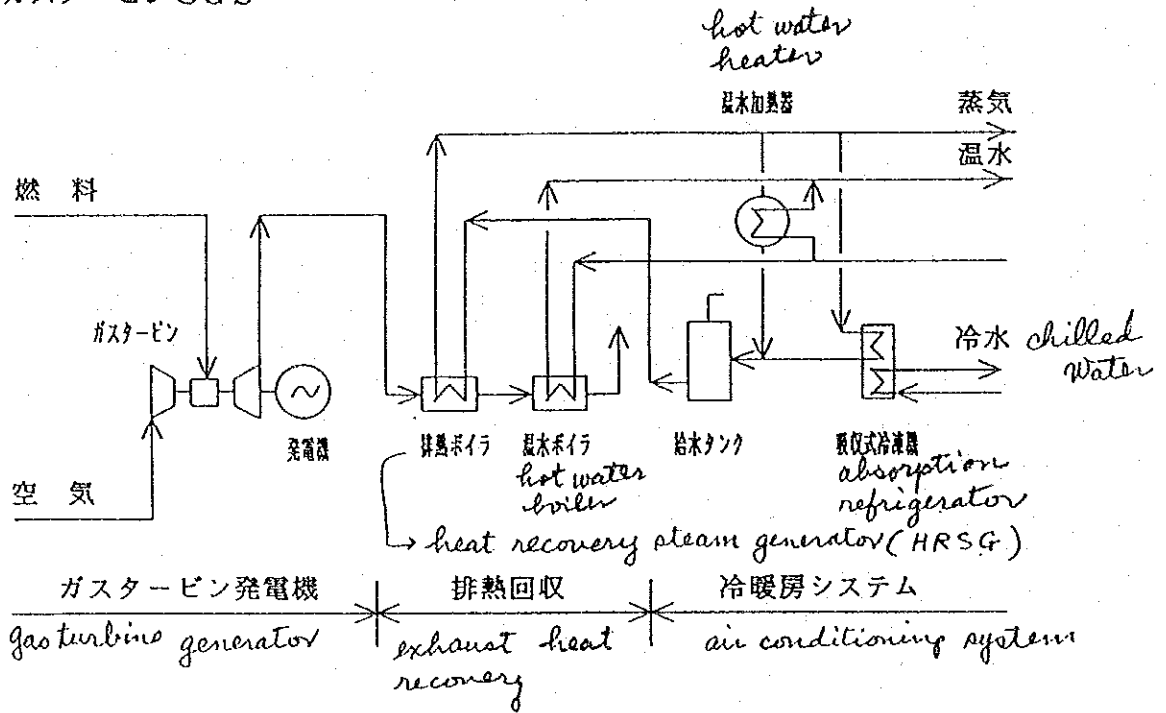 ガスタービンCGS
hot water
heater
温水加熱器
蒸気
温水
燃 料
ガスタービン
冷水 chilled
water
発電機
排熱ボイラ
温水ボイラ
給水タンク
吸収式冷凍機
hot water
boiler
absorption
refrigerator
空 気
heat recovery steam generator (HRSG)
ガスタービン発電機
排熱回収
冷暖房システム
gas turbine generator
exhaust heat
recovery
air conditioning system